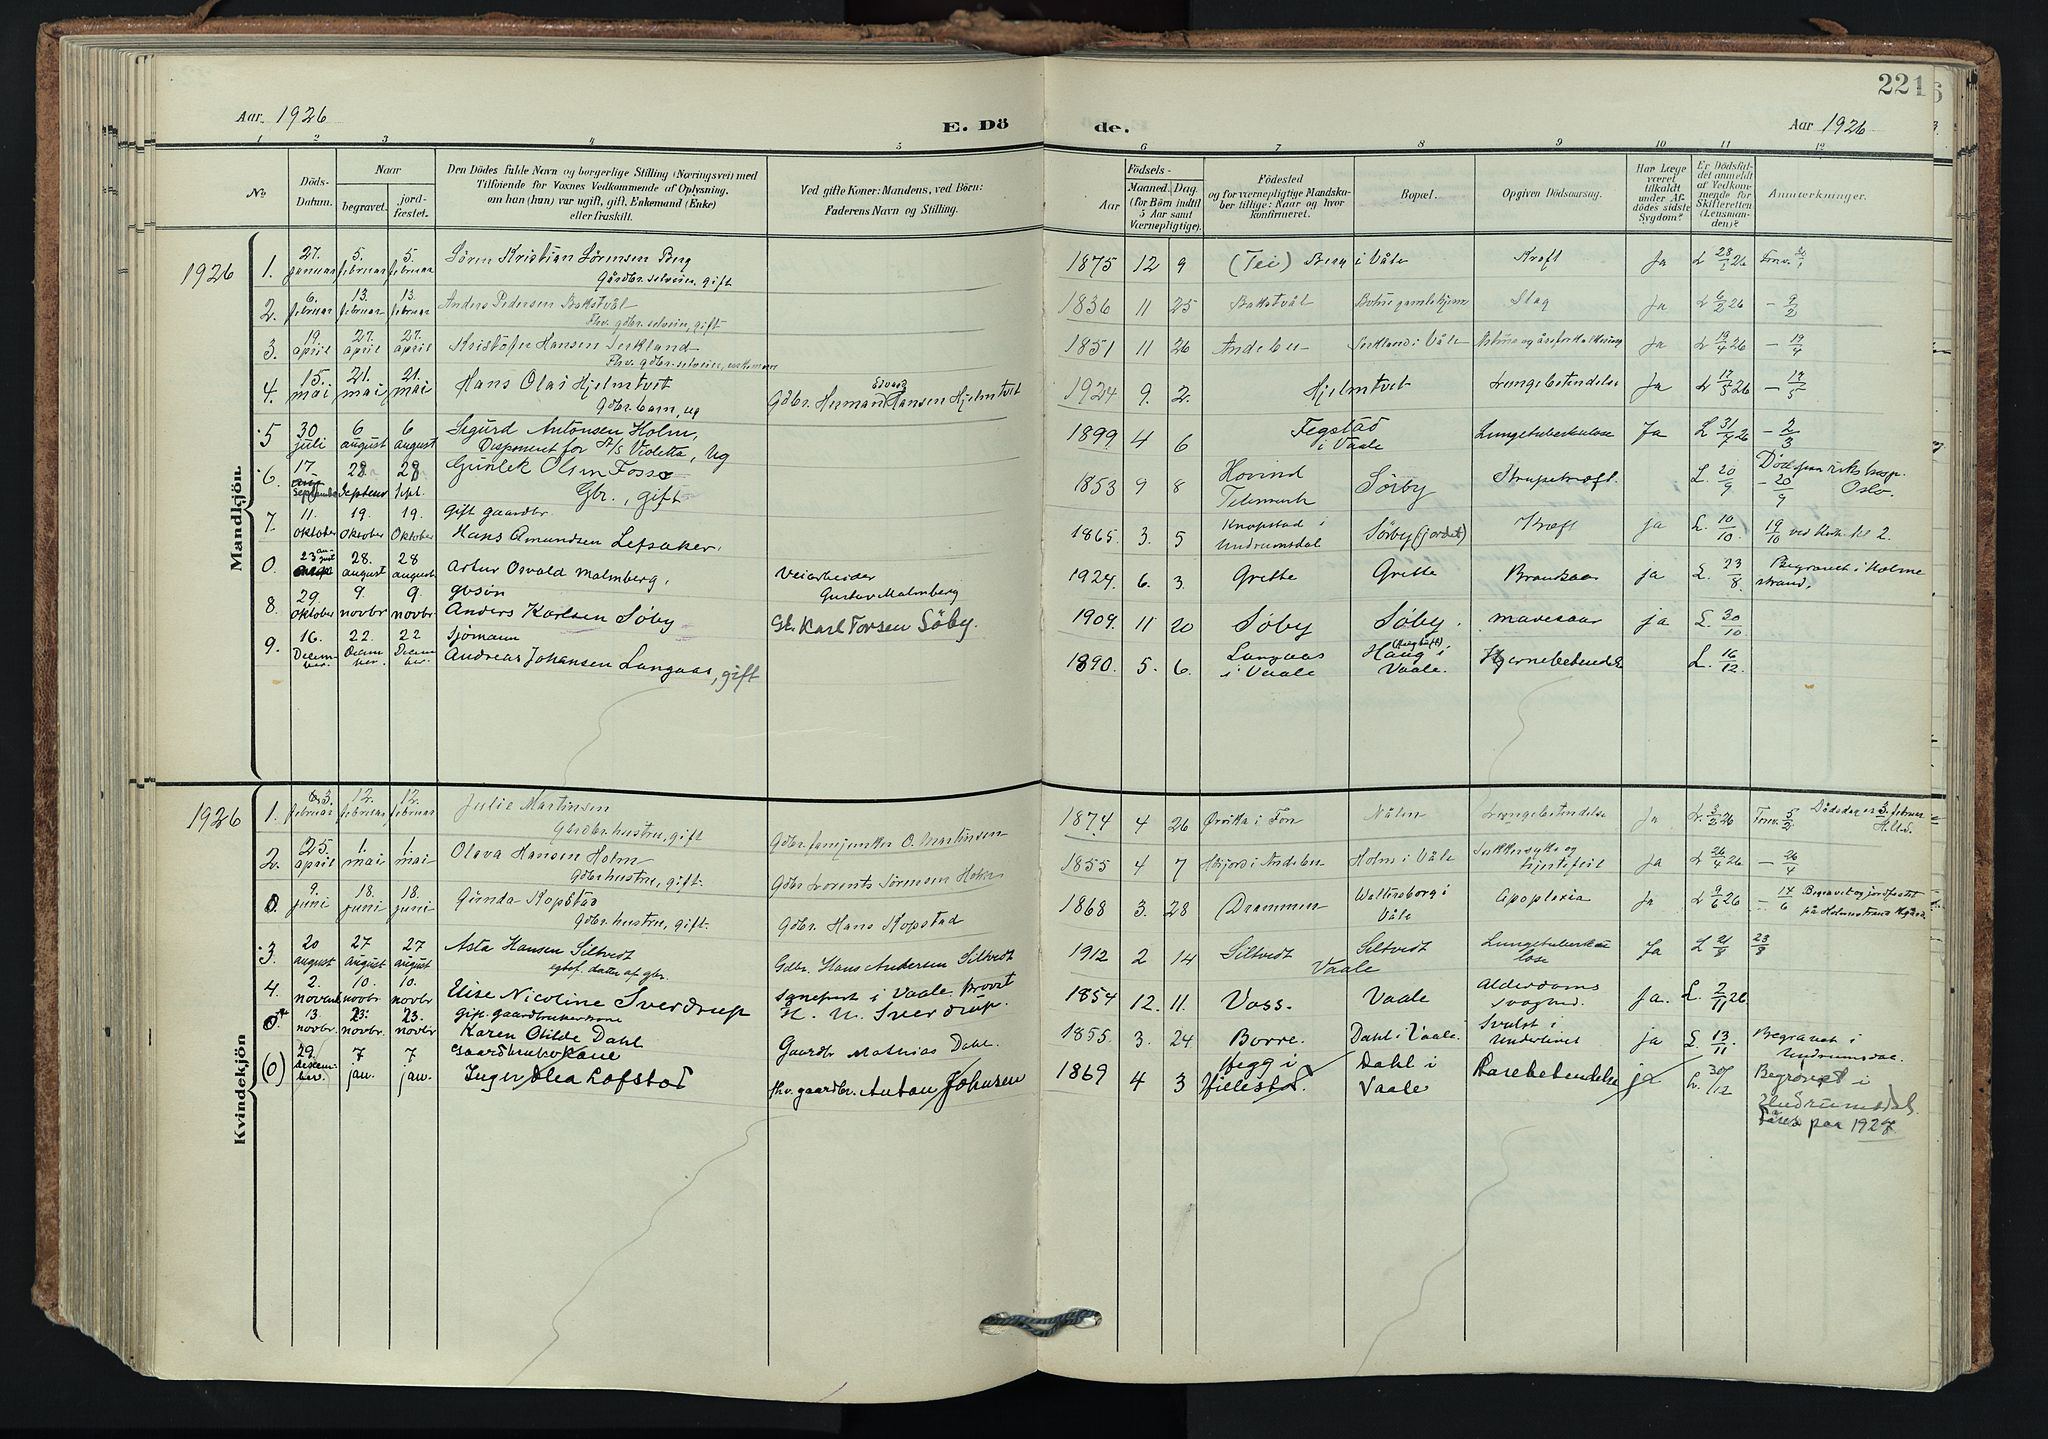 221
Aar 1926
E. Döde.
Aar 1926
1 2 3 4 5 6 7 8 9 10 11 12
No
Döds-Datum.
Naar
begravet.
jord-fæstet.
Den Dödes fulde Navn og borgerlige Stilling (Næringsvei) med
Tilföiende for Voxnes Vedkommende af Oplysning,
om han (hun) var ugift, gift, Enkemand (Enke)
eller fraskilt.
Ved gifte Koner: Mandens, ved Börn:
Faderens Navn og Stilling.
Födsels-
Aar
Maaned. Dag.
(for Börn indtil
5 Aar samt
Værnepligtige).
Födested
og for værnepligtige Mandska-
ber tillige: Naar og hvor
konfirmeret.
Bopæl.
Opgiven Dödsaarsag.
Har Læge
været
tilkaldt
under Af-
dödes sidste
Sygdom?
Er Dödsfal-
det anmeldt
af Vedkom-
mende for
Skifteretten
(Lensman-
den)?
Anmærkninger.
Mandkjön.
1926
1. 27. januar 5. februar 5. februar Sören Kristian Sörensen Berg 1875 12 9 (Tei) Berg i Våle Kræft Ja L 28/1 26
Gårdbr. selveier, gift
2. 6. februar 13. februar 13. februar Anders Pedersen Bakstvål 1836 11 25 Bakstvål Slag Ja L 6/2 26 – 9/2
Fhv. gdbr. selveier, gift
3. 19. april 27. april 27. april Kristofer Hansen 1851 11 26 Andebu i Våle Ja L 19/4 26 – 19/4
Fhv. gdbr. selveier, enkemann
4. 15. mai 21. mai 21. mai Hans Olai Hjelmtvet Gdbr. Herman Hansen Hjelmtvet 1924 9. 2. Hjelmtvet Lungebetendelse Ja L 17/5 26 – 19/5
Gdbr. barn, ug
5 30 juli 6 august 6 august Sigurd Antonsen Holm, 1899 4 6 Fegstad i Vaale Lungetuberkulose Ja L 31/7 26 – 2/3
Disponent for A/S Violetta, Ug
6. 17 September 28 Septembr 28 Sept. Gunlek Olsen Fosse 1853 9 8 Hovind Telemark Sörby Strupekræft. L. 20/9 – 20/9 Död paa rikshosp. Oslo.
Gbr., gift
7. 11. oktober 19. oktober 19. Oktober gift gaardbr. 1865. 3. 5 Knapstad i Undrumsdal Sörby (jordet) Kræft ja L. 10/10 19/10
Hans Amundsen Lefsaker.
0. 23 august 28. august 28 august Artur Osvald Malmberg. Veiarbeider Gustav Malmberg 1924 6. 3. Gretте Grette Brandsaar ja L. 23/8 Begravet i Holmestrand.
8. 29. oktober 9. novbr 9. novbr gbsøn Anders Karlsen Söby Gb. Karl Torsen Söby. 1909 11 20 Söby Söby. mavesaar ja L. 30/10
9. 16. Decem-ber 22. Decem-ber 22 Decem-ber Sjömann Andreas Johansen Langaas, gift 1890. 5. 6. Langaas i Vaale Haug i Vaale. Hjernebetendelse L. 16/12.
Kvindekjön
1926
1. 3. februar 12. februar 12. februar Julie Martinsen 1874 4 26 Ørvika i Fon Nålen Lungebetendelse Ja L. 3/2 26 5/2 Dödsdag er 3. februar H.U.S.
Gårdbr. hustru, gift
2. 25. april 1. mai 1. mai Olava Hansen Holm Gdbr. Lorents Sörensen Holm 1855 4 7 Holm i Våle Sukkersyke og hjertefeil Ja L 26/4 26 – 26/4
Gdbr. hustru, gift.
0. 9. juni 18. juni 18. juni Gunda Kopstad Gdbr. Hans Kopstad 1868 3. 28 Drammen i Våle Apoplexia Ja L 9/6 26 – 14/6 Begravet og jordfæstet på Holmestrand
Gdbr. hustru, gift.
3. 20 august 27 august 27 august Asta Hansen Siltvedt Gdbr. Hans Andersen Siltvedt 1912 2 14 Siltvedt Siltvedt Vaale Lungetuberkulose Ja L 21/8 23/8
egtef. datter af gbr.
4. 2. novbr 10. novbr 10. novbr Elise Nicoline Sverdrup Sogneprest i Vaale, Provst H. U. Sverdrup. 1854 12. 11. Voss. Vaale Alderdoms svaghed. Ja. L. 2/11 26
0. 13. novbr. 23. novbr 23. novbr gift. gaardbrukerkone Karen Otilde Dahl Gaardbr Mathias Dahl. 1855. 3. 24 Borre. Dahl i Vaale Svulst i Underlivet ja L. 13/11 Begravet i Undrumsdal.
(0) 29. decem-ber. 7 jan. 7 jan. Gaardbrukerkone Inger Olea Lofstad fhv. gaardbr. Anton Johnsen 1869 4 3 Hegg i Hillestad. Dahl i Vaale ja L. 30/12 Begravet i Undrumsdal. Föres paa 1927.